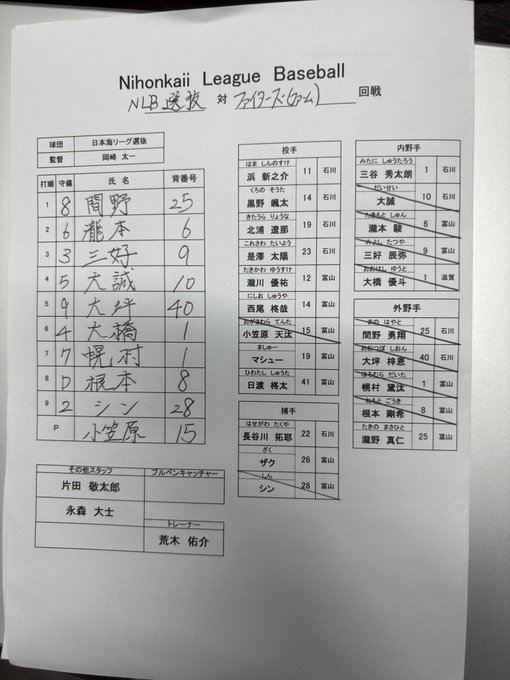 Nihonkaii League Baseball
NLB選抜 対 ファイターズ(ファーム) 回戦
球団 日本海リーグ選抜
監督 岡﨑 太一
打順 守備 氏名 背番号
1 8 間野 25
2 6 瀧本 6
3 3 三好 9
4 5 大誠 10
5 9 大坪 40
6 4 大橋 1
7 7 幌村 1
8 D 根本 8
9 2 シン 28
P 小笠原 15
その他スタッフ ブルペンキャッチャー
片田 敬太郎
永森 大士
トレーナー
荒木 佑介
投手
はま しんのすけ
浜 新之介 11 石川
くろの そうた
黒野 颯太 14 石川
きたうら りょうな
北浦 遼那 19 石川
これさわ たいよう
是澤 太陽 23 石川
たきかわ ゆうすけ
瀧川 優祐 12 富山
にしお しゅうや
西尾 柊哉 14 富山
おがさわら てんた
小笠原 天汰 15 富山
ましゅー
マシュー 19 富山
ひわたし しゅうた
日渡 柊太 41 富山
捕手
はせがわ たくや
長谷川 拓耶 22 石川
ざく
ザク 26 富山
しん
シン 28 富山
内野手
みたに しゅうたろう
三谷 秀太朗 1 石川
だいせい
大誠 10 石川
たきもと しゅん
瀧本 駿 6 富山
みよし たつや
三好 辰弥 9 富山
おおはし ゆうと
大橋 優斗 1 滋賀
外野手
まの はやと
間野 勇翔 25 石川
おおつぼ しおん
大坪 梓恩 40 石川
ほろむら だいた
幌村 黛汰 1 富山
ねもと ごうき
根本 剛希 8 富山
たきの まさひと
瀧野 真仁 25 富山